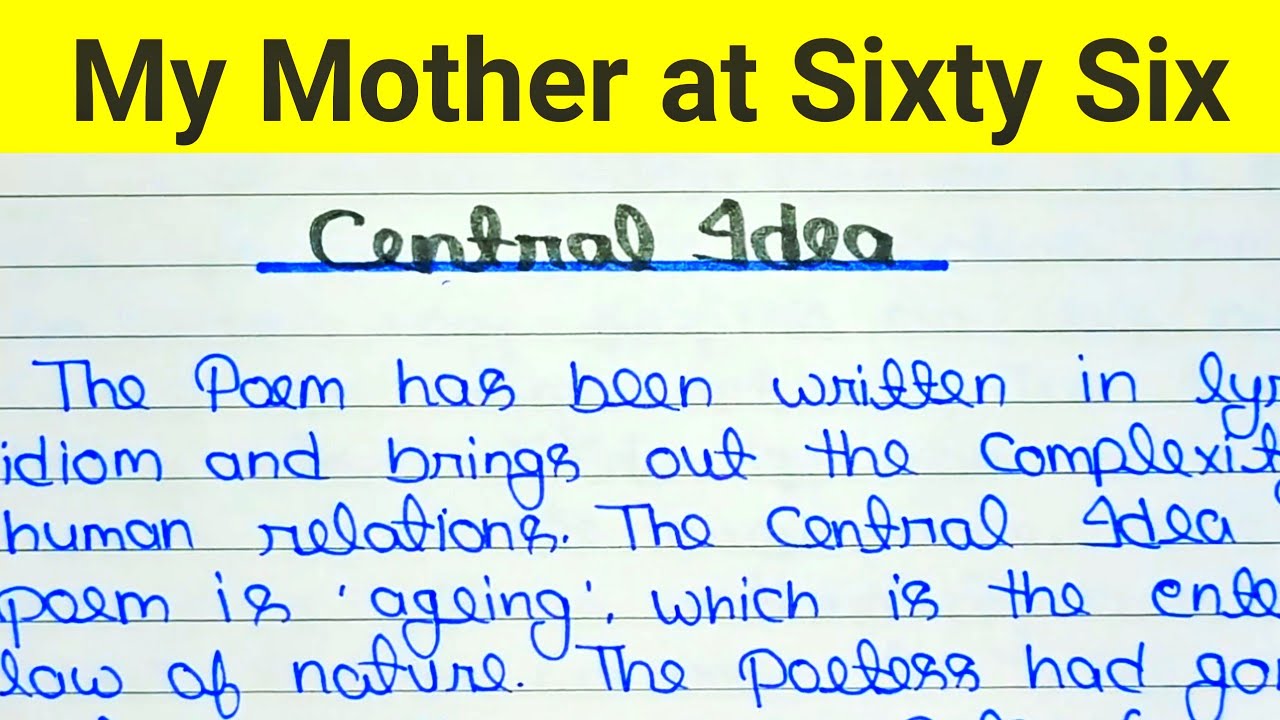 My Mother at Sixty Six
Central Idea
The Poem has been written in
idiom and brings out the
human relations. The Central Idea
poem is 'ageing', which is the
law of nature. The Poetess had